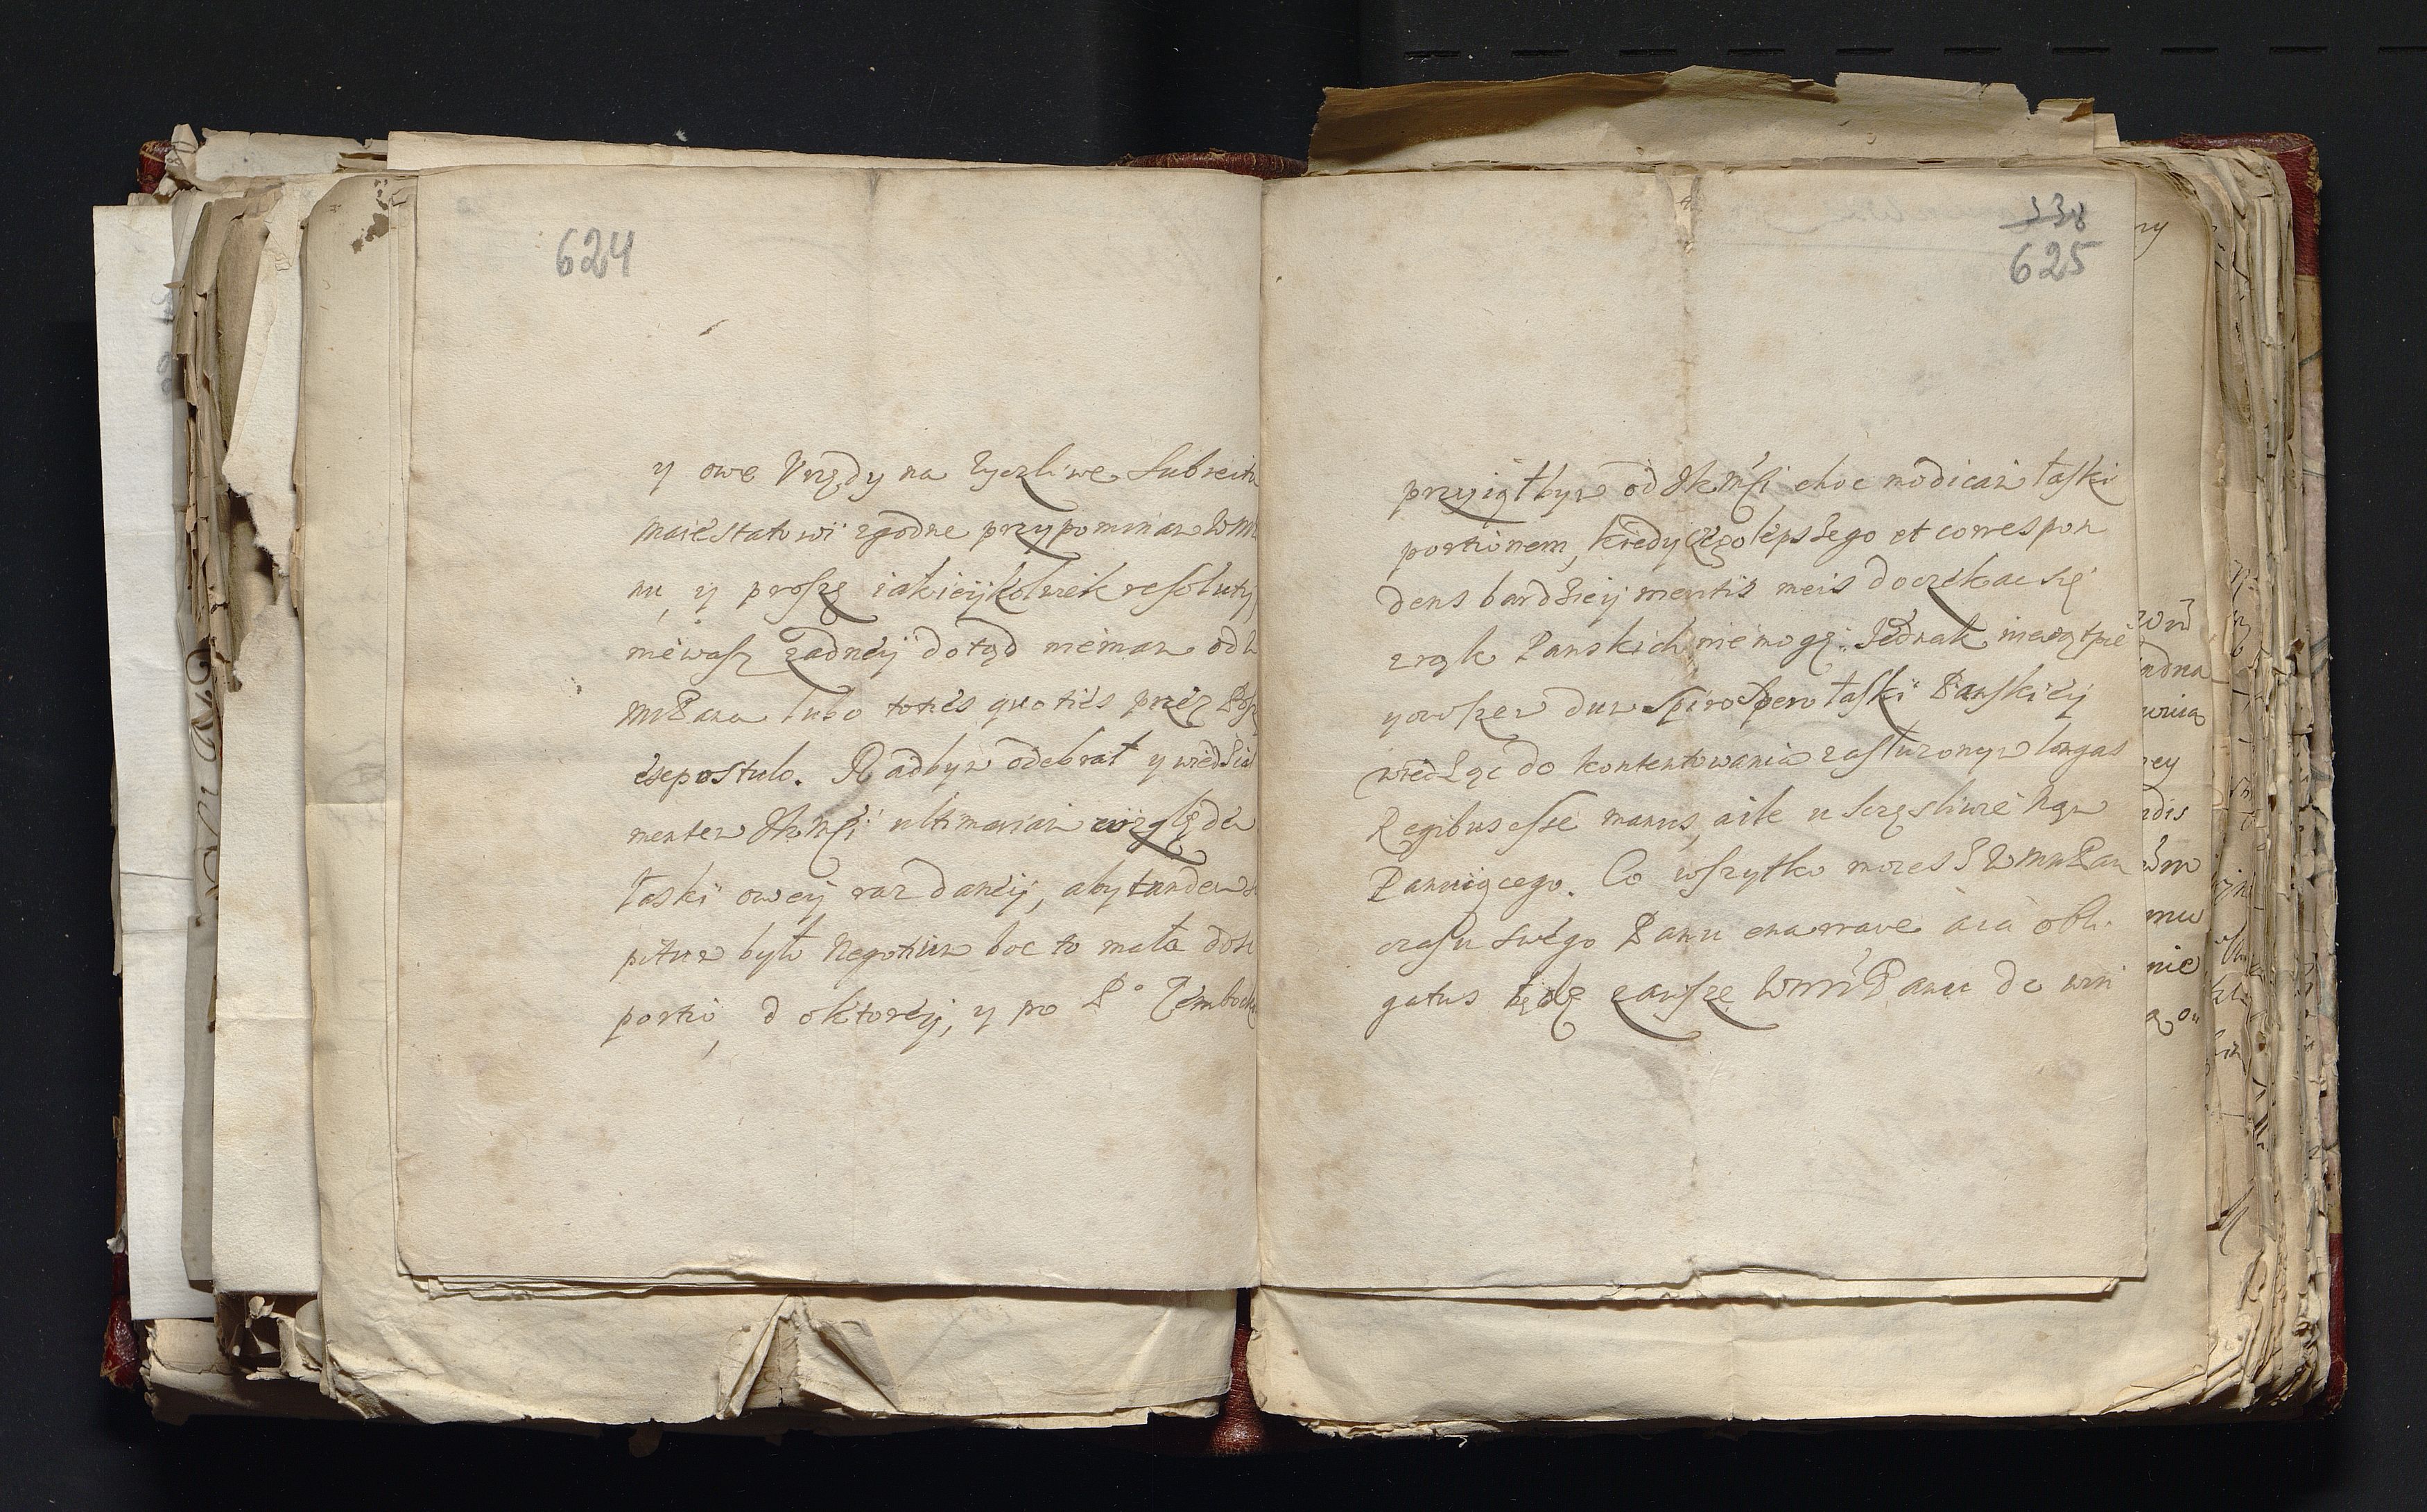 624
y owe Vrzędy na życzliwe Subiecta
maiestatowi zgodne przypominam WM
nu, y proszę iakieijkolwiek resoluty
niewasz żadneij dotąd niemam od W
MPana lubo toties quoties przez
expostulo. Radbym odebrał y wiedział
mentem JKMsi ultimariam względem
łaski owey raz daneij, aby tandem
pitum było Negotium boc to mała dosi
portio, d oktoreij, y po P°
338
625
przyiąłbym od JKMsi choc modicam łaski
portionem, kiedy czego lepszego et correspon
dens bardzieij meritis meis doczekac się
zrąk Panskich nie mogę. Jednak niewątpie
yowszem dum Spiro Spero łaski Panskieij
wiedząc do kontentowania zasłużonym longas
Regibus esse manus, aile u szczęsliwie Nąm
Panuiącego. Co wszytko możesz WMMPan
czasu swego Panu enarrare aia obli
gatus będę zawsze WMMPanu do win